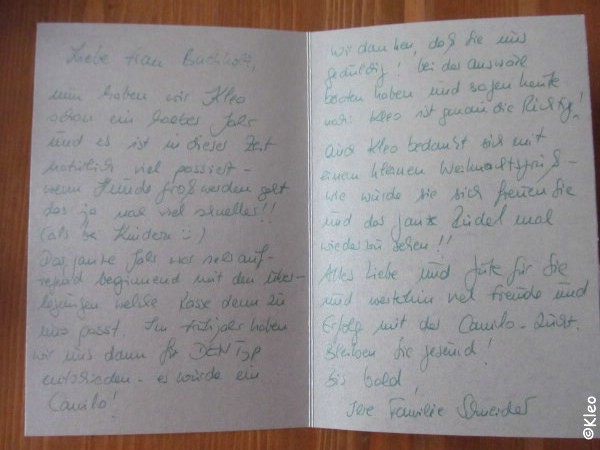 Liebe Frau Buchholz,
nun haben wir Kleo
schon ein halbes Jahr
und es ist in dieser Zeit
natürlich viel passiert -
wenn Hunde groß werden geht
das ja mal viel schneller!!
(als bei Kindern :-)
Das ganze Jahr war sehr auf-
regend beginnend mit den Über-
legungen welche Rasse denn zu
uns passt. Im Frühjahr haben
wir uns dann für DEN Typ
entschieden - es würde ein
Camilo!
Wir danken, daß Sie uns
geduldig! bei der Auswahl
beraten haben und sagen heute
noch: Kleo ist genau die Richtig!
Auch Kleo bedankt sich mit
einem kleinen Weihnachtsgruß -
wie würde sie sich freuen Sie
und das ganze Rudel mal
wiederzusehen!!
Alles Liebe und Gute für Sie
und weiterhin viel Freude und
Erfolg mit der Camilo-Zucht.
Bleiben Sie gesund!
Bis bald,
Ihre Familie Schneider
©Kleo